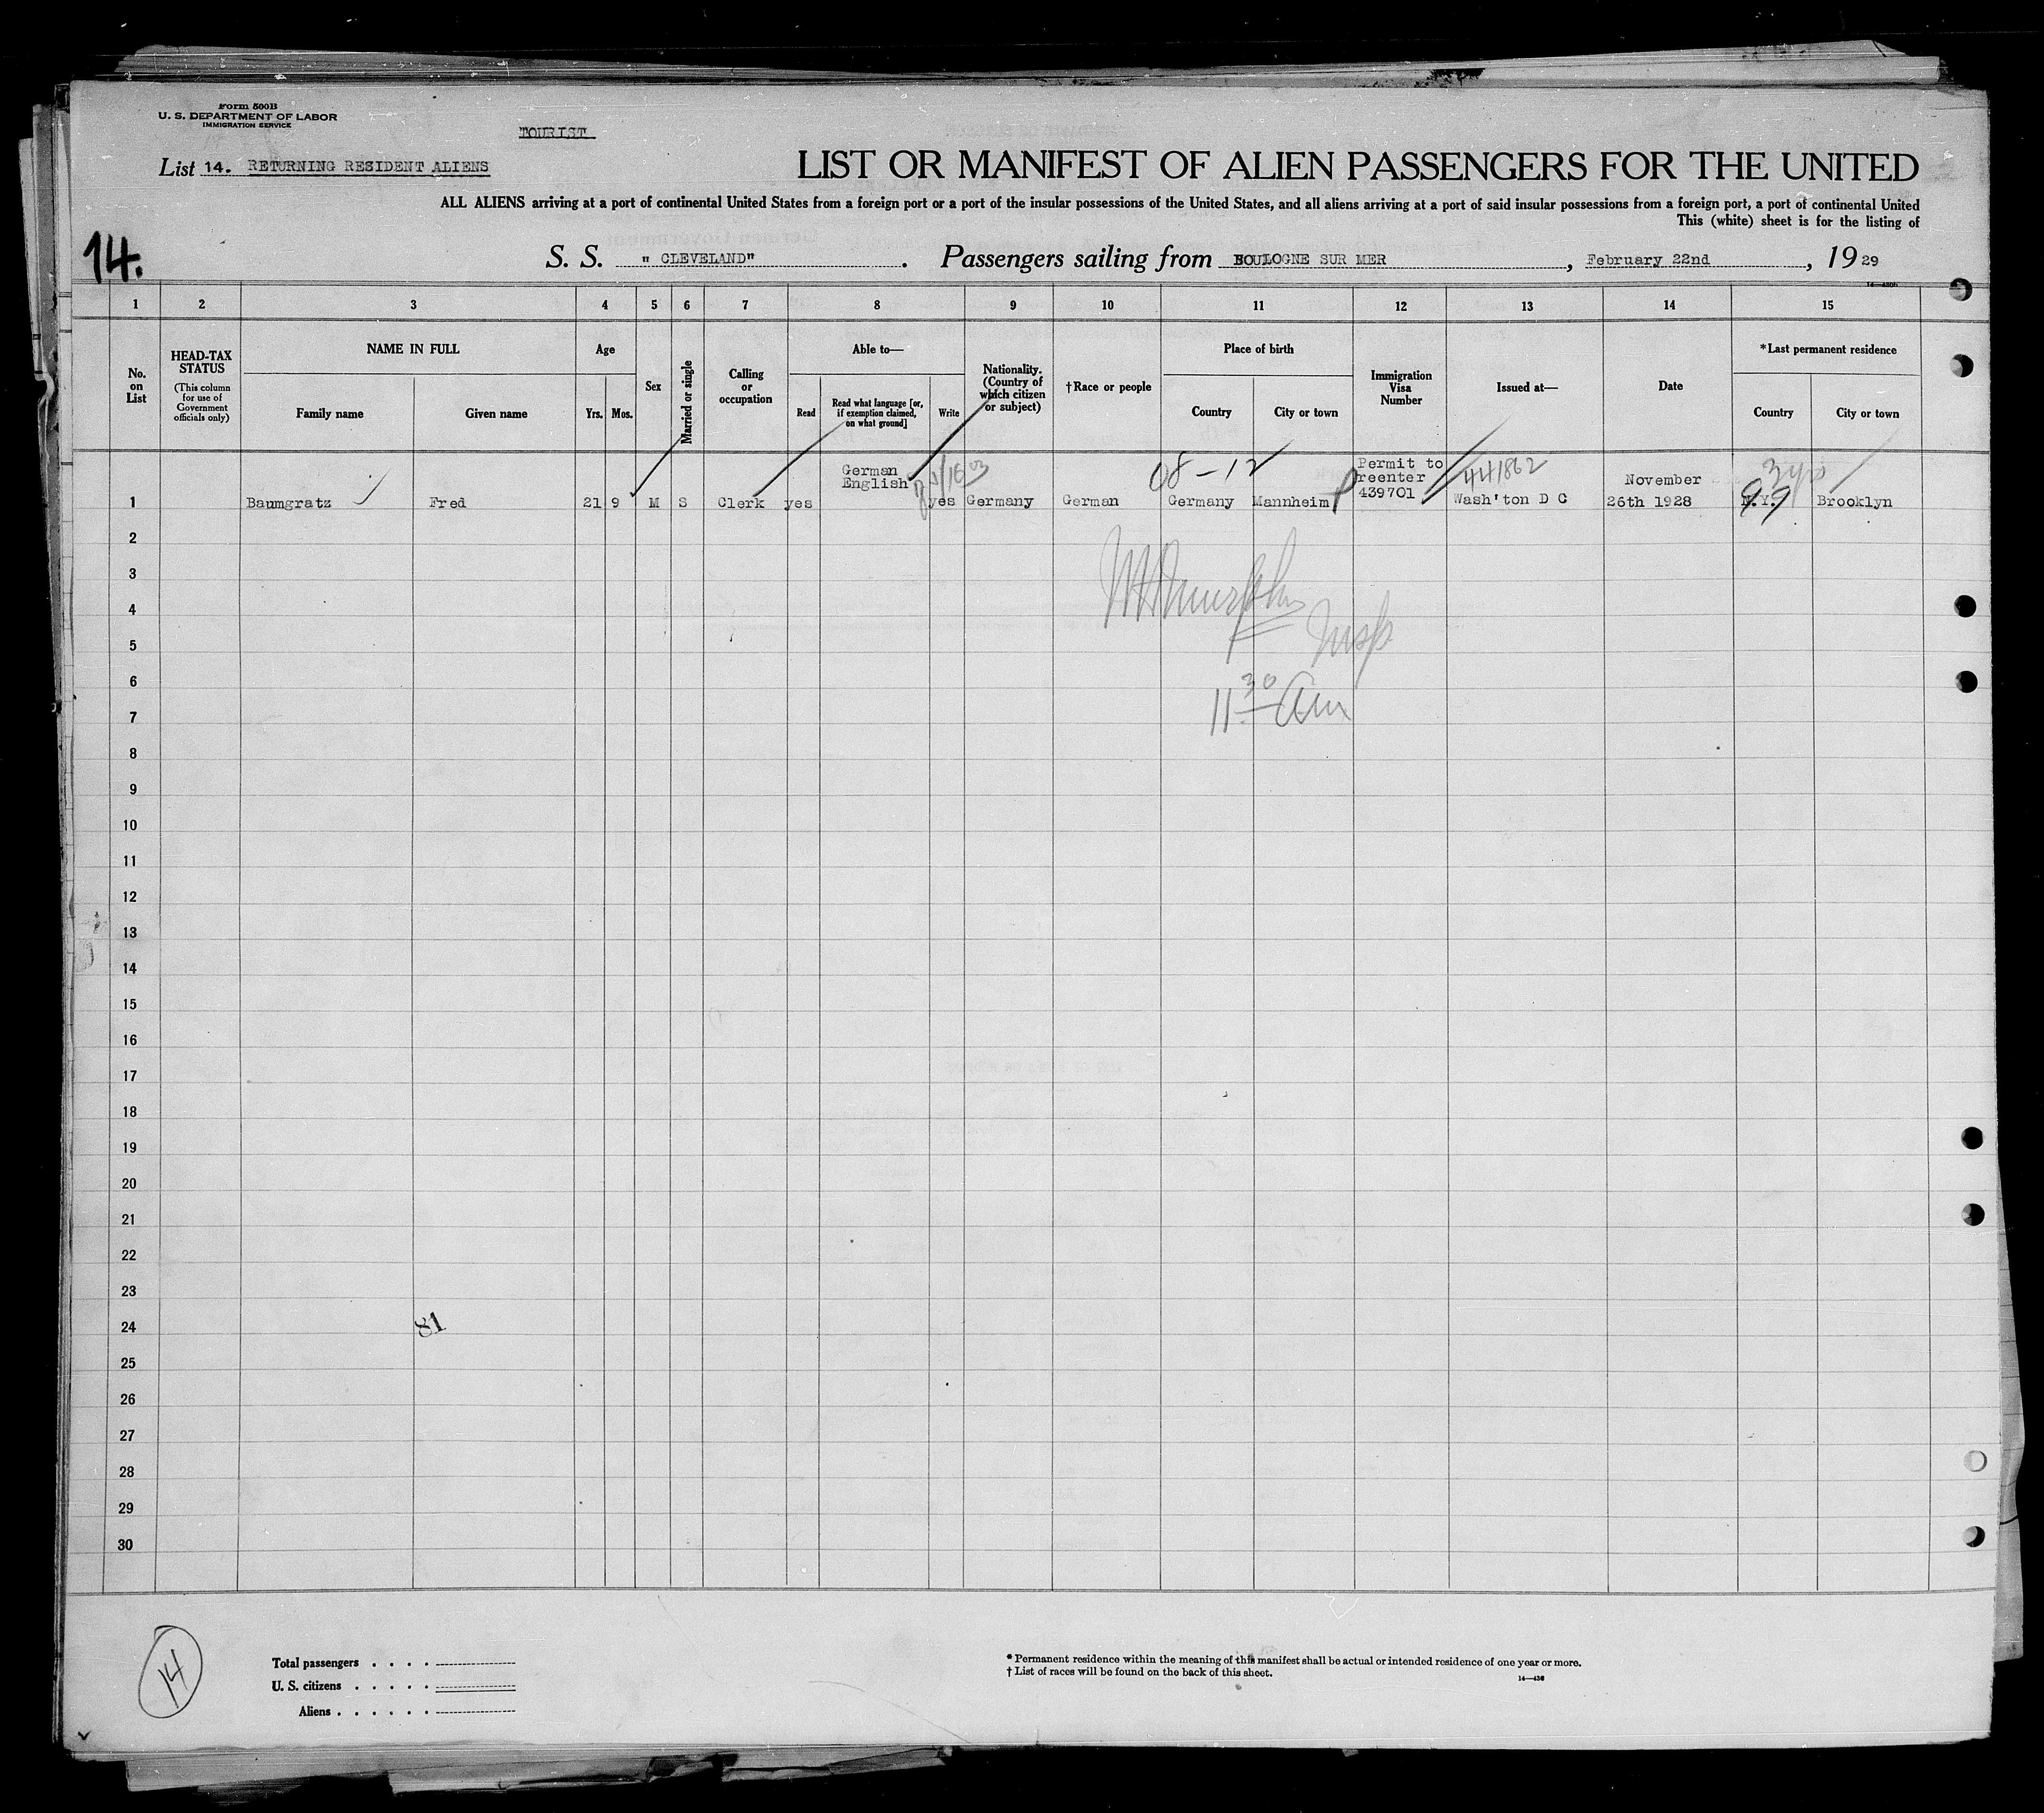 Form 500B
U. S. DEPARTMENT OF LABOR
IMMIGRATION SERVICE
TOURIST
List 14. RETURNING RESIDENT ALIENS
LIST OR MANIFEST OF ALIEN PASSENGERS FOR THE UNITED
ALL ALIENS arriving at a port of continental United States from a foreign port or a port of the insular possessions of the United States, and all aliens arriving at a port of said insular possessions from a foreign port, a port of continental United
This (white) sheet is for the listing of
14.
S. S. " CLEVELAND". Passengers sailing from BOULOGNE SUR MER, February 22nd, 1929
1 2 3 4 5 6 7 8 9 10 11 12 13 14 15
No. on List
HEAD-TAX STATUS
(This column for use of Government officials only)
NAME IN FULL
Family name
Given name
Age
Yrs.
Mos.
Sex
Married or single
Calling or occupation
Able to—
Read
Read what language [or, if exemption claimed, on what ground]
Write
Nationality. (Country of which citizen or subject)
†Race or people
Place of birth
Country
City or town
Immigration Visa Number
Issued at—
Date
*Last permanent residence
Country
City or town
08-12
441862
3 yrs
1 Baumgratz Fred 21 9 M S Clerk yes German English yes Germany German Germany Mannheim Permit to reenter 439701 Wash'ton D C November 26th 1928 N.Y. Brooklyn
2
3
4
5
Insp
6
11 30 Am
7
8
9
10
11
12
13
14
15
16
17
18
19
20
21
22
23
24
81
25
26
27
28
29
30
14
Total passengers . . . .
U. S. citizens . . . . .
Aliens . . . . . .
* Permanent residence within the meaning of this manifest shall be actual or intended residence of one year or more.
† List of races will be found on the back of this sheet.
14—430